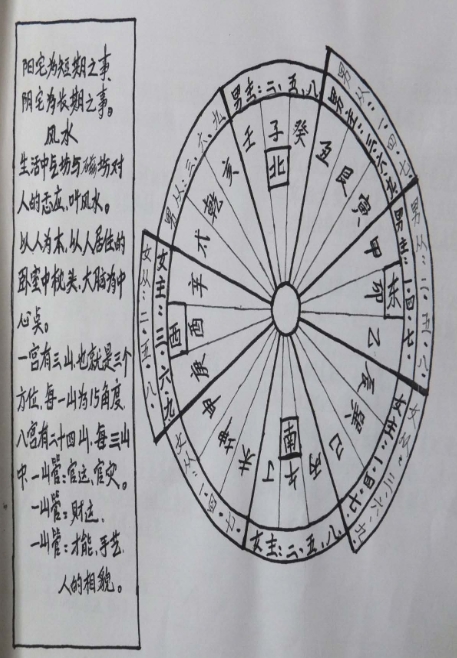 阳宅为短期之事,
阴宅为长期之事。
风水
生活中气场与磁场对
人的感应,叫风水。
以人为本,以人居住的
卧室中枕头,大脑为中
心点。
一宫有三山,也就是三个
方位,每一山为15角度,
八宫有二十四山,每三山
中,一山管:官运,官灾。
一山管:财运,
一山管:才能,手艺,
人的相貌。
男主:二、五、八
男从:一、四、七、
男主:三、六、九
男从:二、五、八、
男主:一、四、七、
女从:三、六、九、
女主:一、四、七、
女主:二、五、八、
女从:二、五、八、
女主:三、六、九
男从:三、六、九
壬
子
癸
北
丑
艮
寅
甲
卯
东
乙
辰
巽
巳
丙
午
南
丁
未
坤
申
庚
酉
西
辛
戌
乾
亥